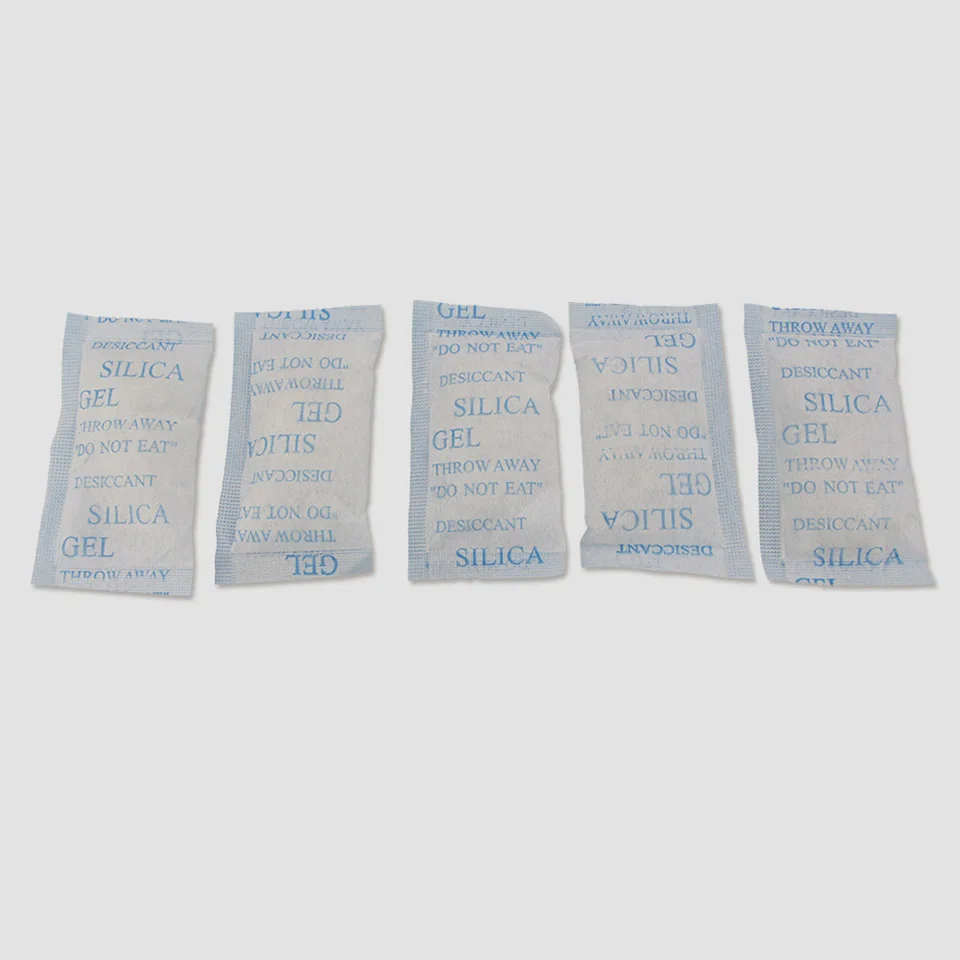 DO NOT EAT
DESICCANT
SILICA
GEL
THROW AWAY
"DO NOT EAT"
DESICCANT
SILICA
GEL
THROW AWAY
GEL
THROW AWAY
"DO NOT EA
DESICCANT
SILICA
GEL
THROW AWAY
"DO NOT EAT
SILICA
GEL
THROW AWAY
"DO NOT EAT"
DESICCANT
SILICA
GEL
THROW AWAY
"DO NOT EAT"
DESICCANT
SILICA
DESICCANT
SILICA
GEL
THROW AWAY
"DO NOT EAT"
DESICCANT
SILICA
GEL
THROW AWAY
THROW AWAY
"DO NOT EAT"
DESICCANT
SILICA
GEL
THROW AWAY
"DO NOT EAT"
DESICCANT
SILICA
GEL